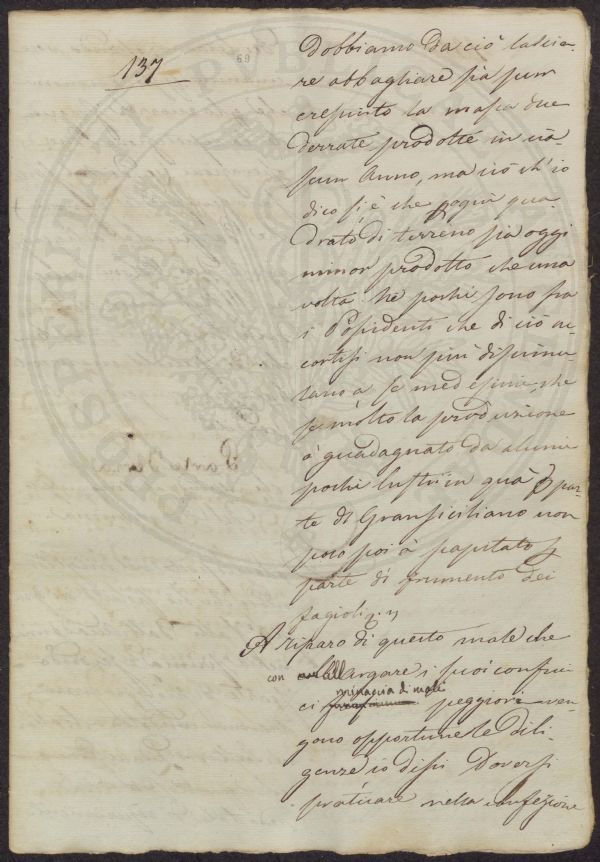 137
69
Dobbiamo da ciò lascia-
re abbagliare sia pur
cresciuto la massa due
derrate prodotte in cia-
scun Anno, ma ciò ch'io
dico si è che ogni qua
drato di terreno sia oggi
minor prodotto che una
volta. Nè pochi sono fra
i Possidenti che di ciò ac
cortisi non più dissimu
lano a se medesimi, che
se molto la produzione
à guadagnato da alcuni
pochi lustri in quà p par-
te di Gransiciliano non
poco poi à scapitato p
parte di frumento dei
fagioli
A riparo di questo male che
con allargare i suoi confini
ci minaccia di mali peggiori ven-
gono opportune le dili-
genze io dissi Doversi
praticare nella confezione